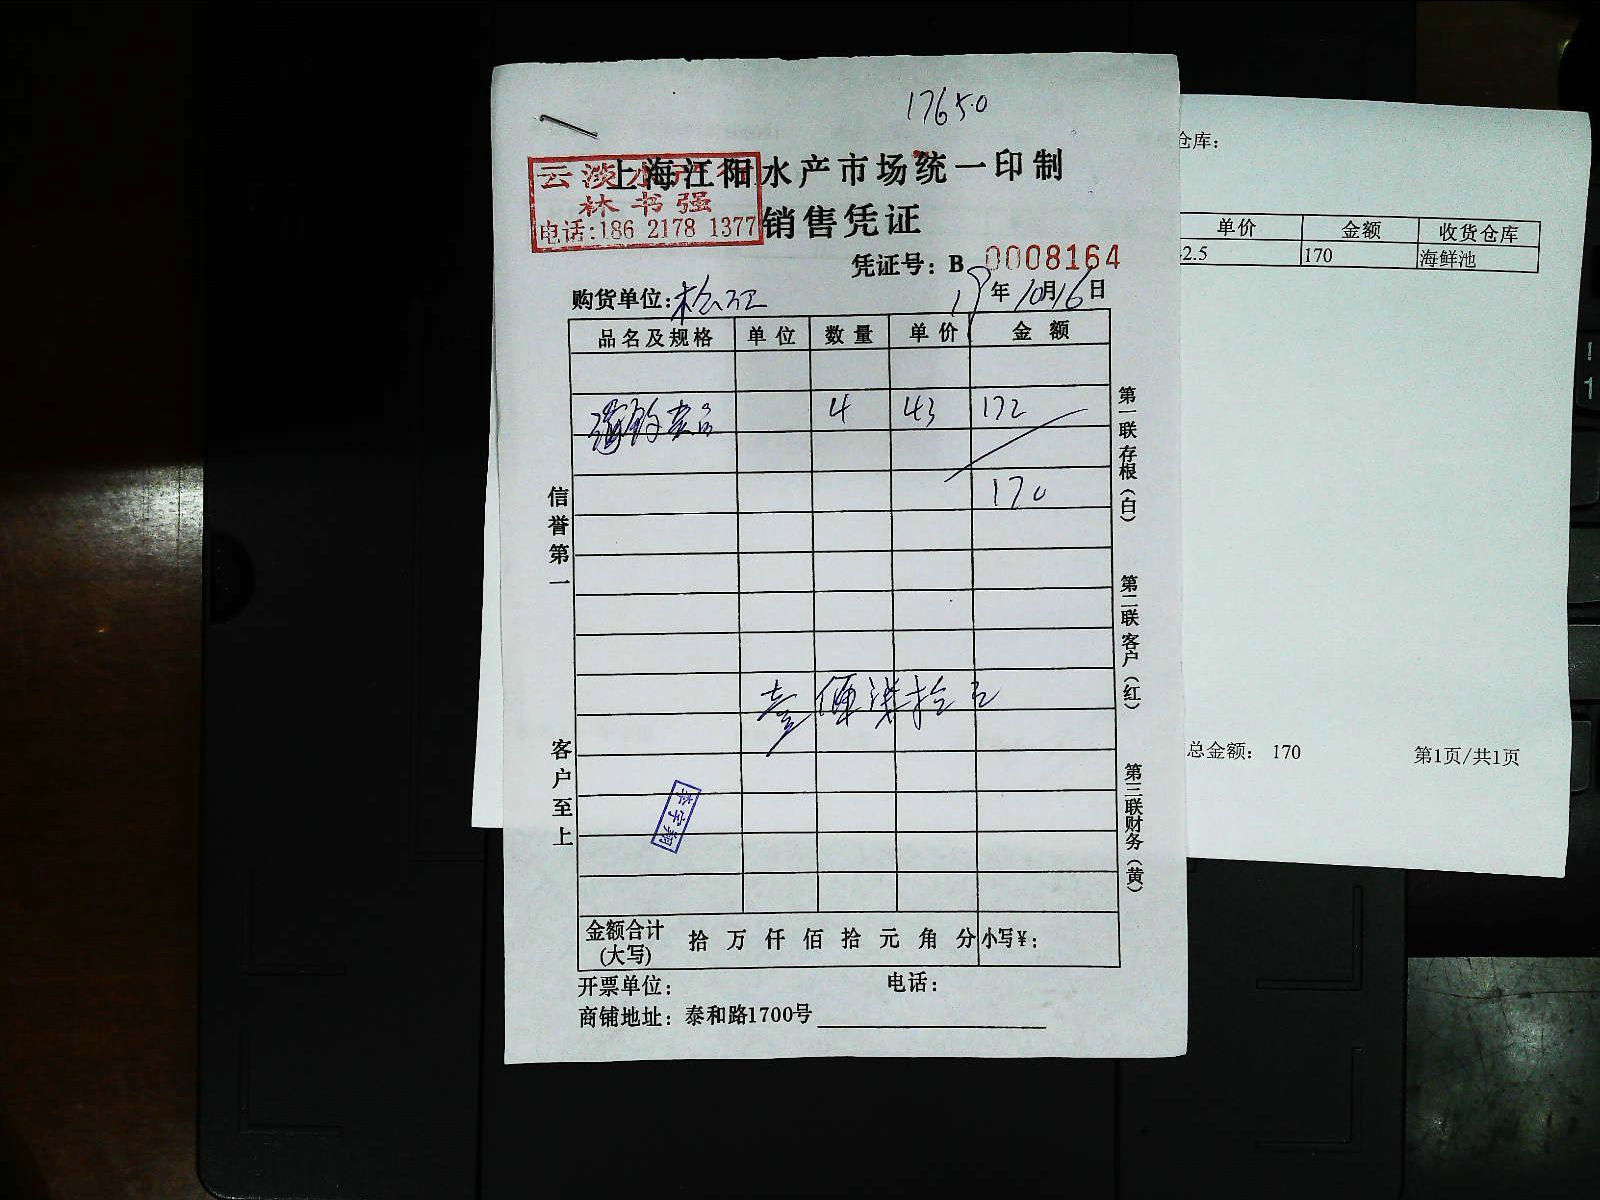 17650
上海江阳水产市场统一印制
云淡水产行
林书强
电话:186 2178 1377
销售凭证
凭证号: B 0008164
购货单位:松江
19年10月16日
品名及规格 单位 数量 单价 金额
4 43 172
170
壹佰柒拾元
李宇翔
金额合计(大写) 拾 万 仟 佰 拾 元 角 分 小写¥:
开票单位: 电话:
商铺地址: 泰和路1700号
信誉第一
客户至上
第一联存根(白)
第二联客户(红)
第三联财务(黄)
仓库:
单价 金额 收货仓库
2.5 170 海鲜池
总金额: 170 第1页/共1页